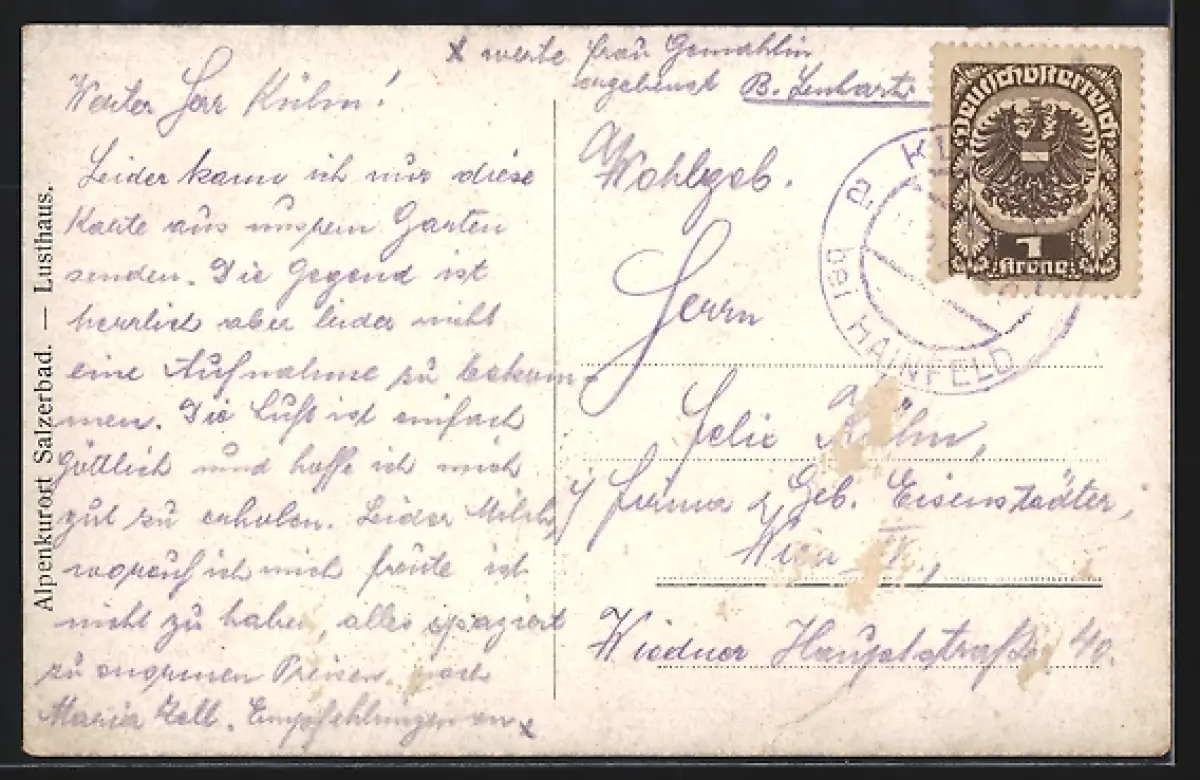 Alpenkurort Salzerbad. — Lusthaus.
Werter Herr Kühm!
Leider kann ich nur diese
Karte aus unsrem Garten
senden. Die Gegend ist
herrlich aber leider nicht
eine Aufnahme zu bekom-
men. Die Luft ist einfach
göttlich und hoffe ich mich
gut zu erholen. Leider Milch,
worauf ich mich freute ist
nicht zu haben, alles spaziert
zu enormen Preisen nach
Maria Zell. Empfehlungen an x
x werte Frau Gemahlin
ergebenst B. Lenhart
Deutschösterreich
1
Krone
a
bei HAINFELD
Wohlgeb.
Herrn
Felix Kühm,
i/ Firma Geb. Eisenstädter,
Wien IV.,
Wiedner Hauptstraße 40.